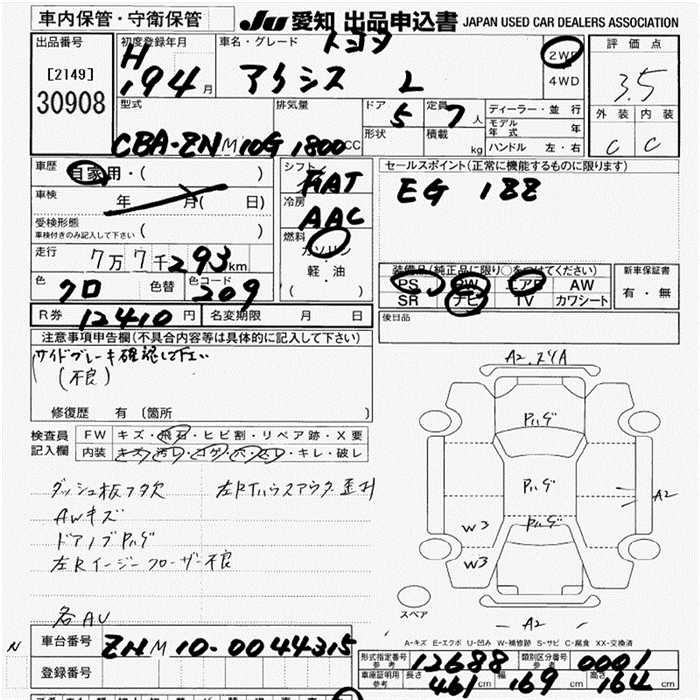 車内保管・守衛保管
JU 愛知 出品申込書 JAPAN USED CAR DEALERS ASSOCIATION
出品番号
[2149]
30908
初度登録年月
H 19 4 月
車名・グレード
トヨタ
アイシス L
2WD
4WD
評価点
3.5
外装 内装
C C
型式
CBA-ZNM10G
排気量
1800 CC
ドア 5
形状
定員 7 人
積載 kg
ディーラー・並行
モデル年式 年
ハンドル 左・右
車歴
自家用・( )
車検 年 月( 日)
受検形態
車検付きのみ記入して下さい ( )
走行 7万7千293km
色 クロ 色替 色コード 209
シフト FAT
冷房 AAC
燃料 ガソリン
軽・油
( )
セールスポイント(正常に機能するものに限ります)
EG 188
装備品(純正品に限り○をつけてください)
PS PW エアB AW
SR ナビ TV カワシート
新車保証書
有・無
R券 12410 円 名変期限 月 日
後日品
注意事項申告欄(不具合内容等は具体的に記入して下さい)
サイドブレーキ確認して下さい
(不良)
修復歴 有 〔箇所 〕
検査員記入欄
FW キズ・飛石・ヒビ割・リペア跡・X要
内装 キズ・汚レ・コゲ・穴・スレ・キレ・破レ
ダッシュ板フタ欠
AWキズ
ドアノブPハゲ
左Rイージークローザー不良
各AU
A2
Pハゲ
Pハゲ
Pハゲ
A2
W3
W3
スペア
A2
A-キズ E-エクボ U-凹み W-補修跡 S-サビ C-腐食 XX-交換済
N
車台番号 ZNM10-0044315
登録番号
形式指定番号 参考 12688
類別区分番号 参考 0001
車庫証明用 参考 長さ 461cm 幅 169cm 高さ 164cm